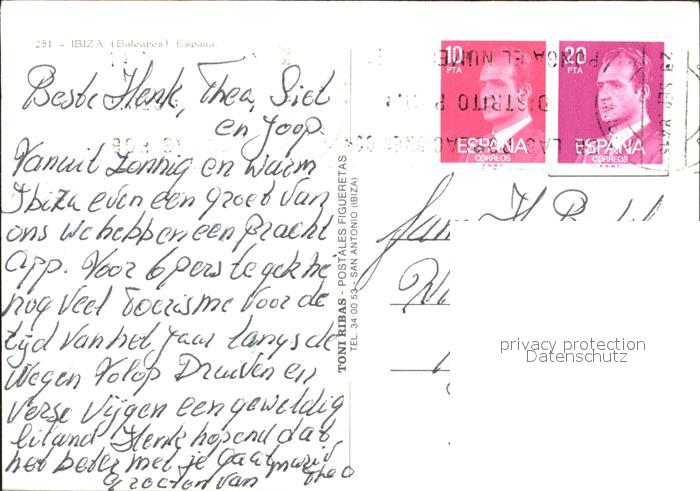 251 - IBIZA (Baleares) España.
Beste Henk, Thea, Siet
en Joop.
Vanuit Zonnig en warm
Ibiza even een groet van
ons we hebben een pracht
app. Voor 6 pers te gek hé
nog veel Toerisme Voor de
tijd van het Jaar langs de
Wegen Volop Druiven en
Verse Vijgen een geweldig
Eiland Henk hopend dat
het beter met je gaat
Groeten van
Theo
TONI RIBAS - POSTALES FIGUERETAS
TEL. 34 00 53 - SAN ANTONIO (IBIZA)
10
PTA
ESPAÑA
CORREOS
F.N.M.T.
20
PTA
ESPAÑA
CORREOS
F.N.M.T.
PONGA EL NUME
DISTRITO P
LAS
Fam. H
privacy protection
Datenschutz